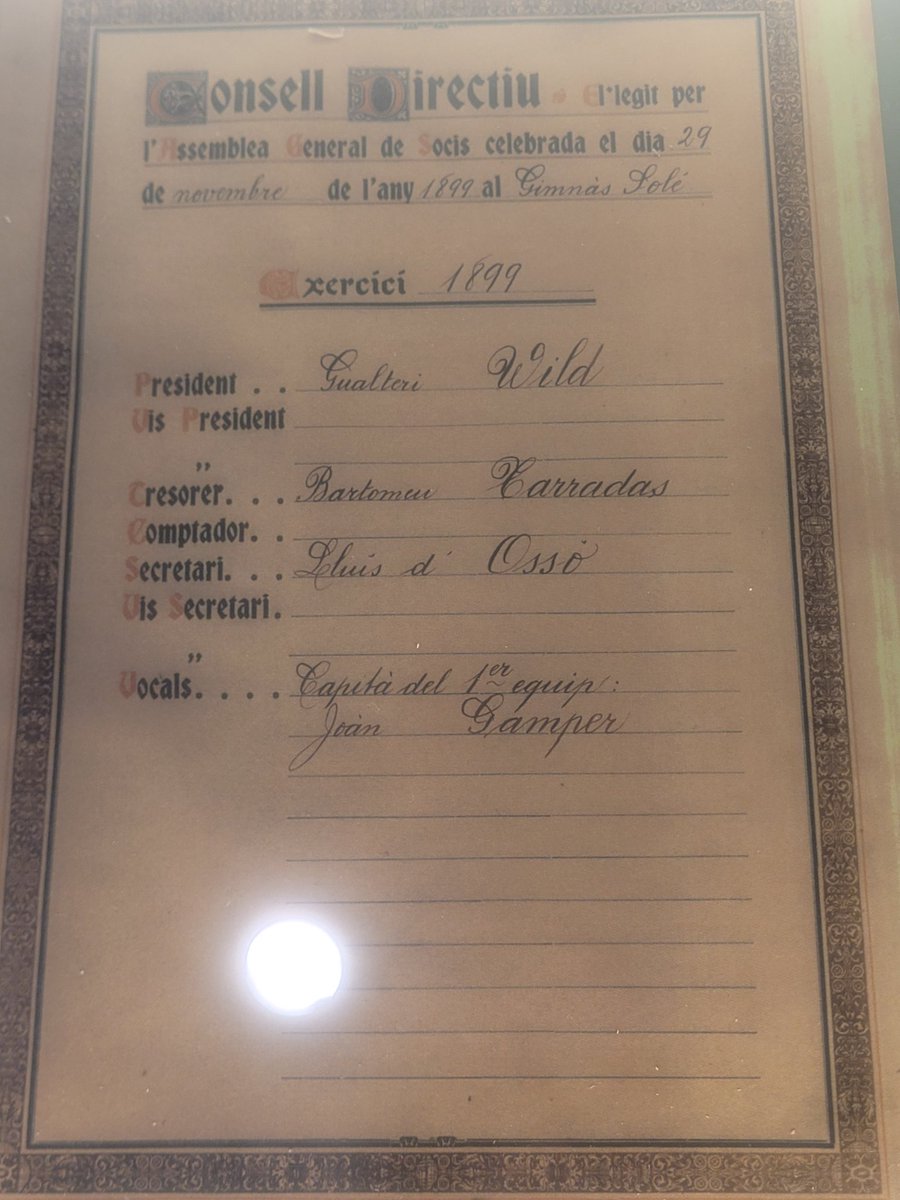 Consell Directiu · El·legit per
l'Assemblea General de Socis celebrada el dia 29
de novembre de l'any 1899 al Gimnàs Solé
Exercici 1899
President . . Gualteri Wild
Vis President
"
Tresorer. . . Bartomeu Tarradas
Comptador. .
Secretari. . . Lluís d' Ossó
Vis Secretari.
"
Vocals. . . . . Capità del 1er equip:
Joàn Gamper